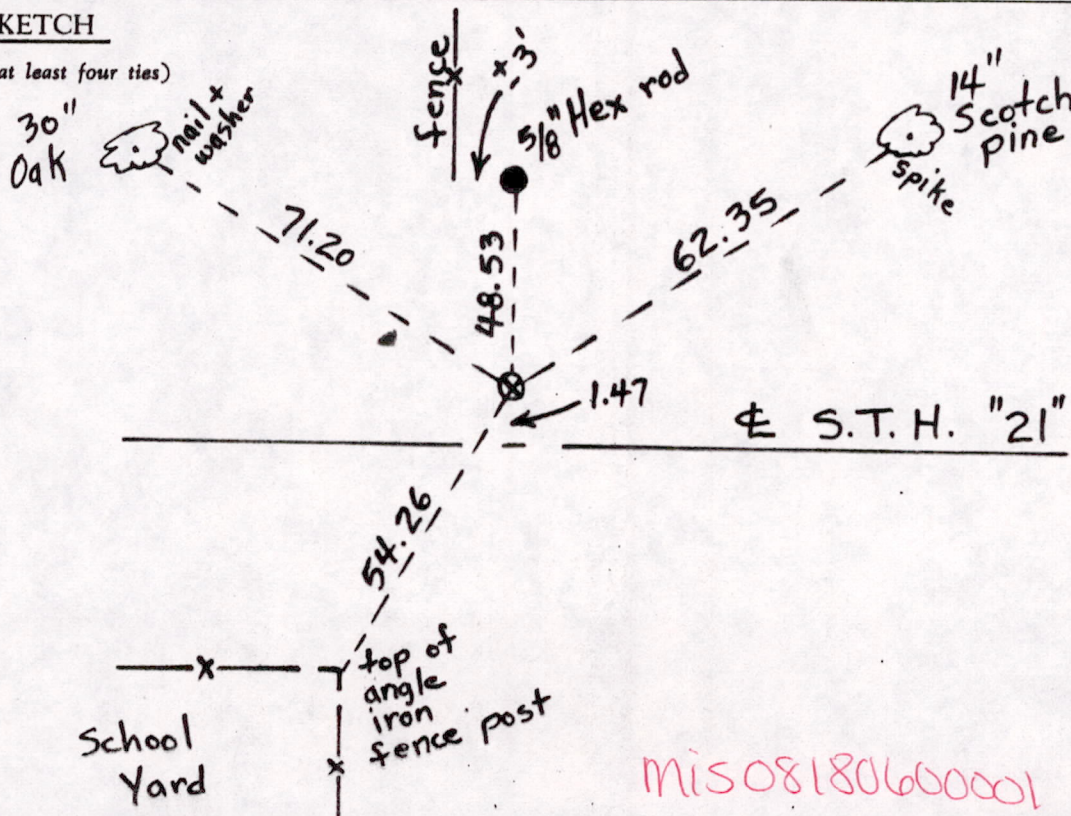 KETCH
at least four ties)
30"
Oak
nail +
washer
fence
x -3'
5/8" Hex rod
14"
Scotch
pine
spike
71.20
48.53
62.35
1.47
℄ S.T.H. "21"
54.26
top of
angle
iron
fence post
School
Yard
mis08180600001